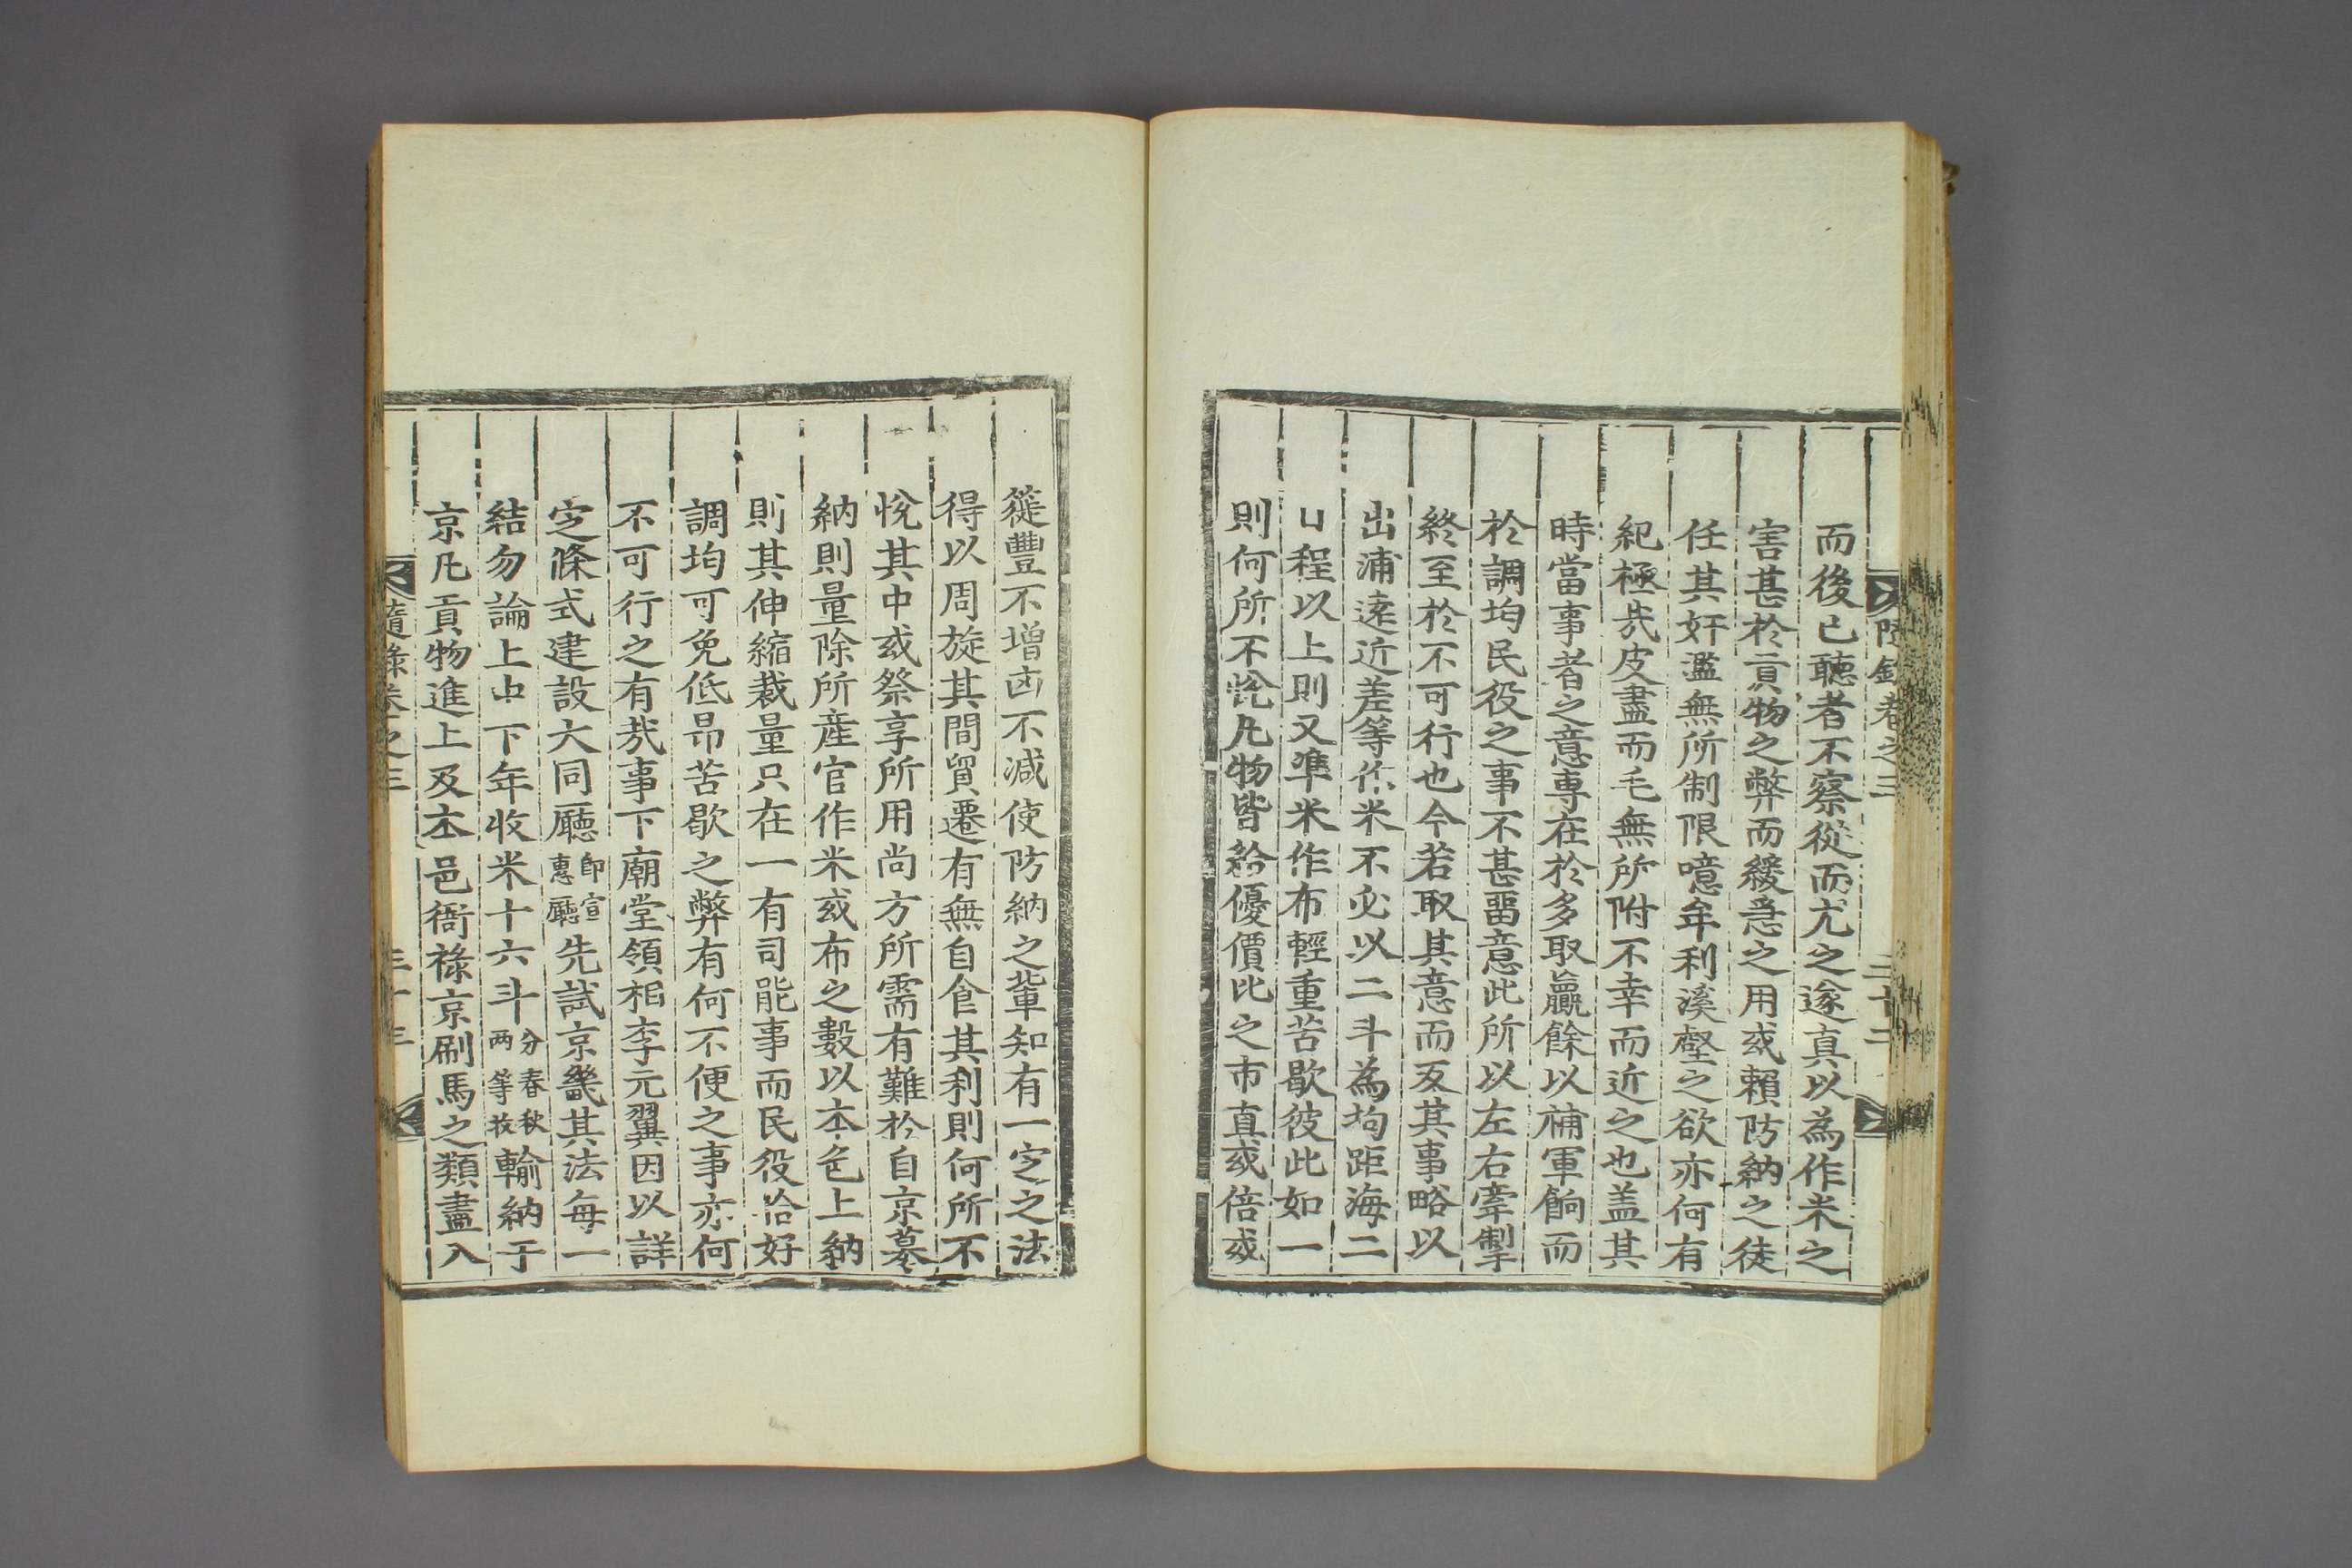 隨錄卷之三
而後已聽者不察從而尤之遂真以為作米之
害甚於貢物之弊而緩急之用或賴防納之徒
任其奸濫無所制限噫牟利溪壑之欲亦何有
紀極㦲皮盡而毛無所附不幸而近之也盖其
時當事者之意專在於多取贏餘以補軍餉而
於調均民役之事不甚畱意此所以左右牽掣
終至於不可行也今若取其意而反其事略以
出浦遠近差等作米不必以二斗為均距海二
日程以上則又準米作布輕重苦歇彼此如一
則何所不恱凡物皆給優價比之市直或倍或
蓰豐不增凶不減使防納之輩知有一定之法
得以周旋其間貿遷有無自食其利則何所不
悅其中或祭享所用尚方所需有難於自京募
納則量除所産官作米或布之數以本色上納
則其伸縮裁量只在一有司能事而民役恰好
調均可免低昂苦歇之弊有何不便之事亦何
不可行之有㦲事下廟堂領相李元翼因以詳
定條式建設大同廳
即宣
惠廳
先試京畿其法每一
結勿論上中下年收米十六斗
分春秋
两等收
輸納于
京凡貢物進上及本邑衙祿京刷馬之類盡入
隨錄卷之三
三十三